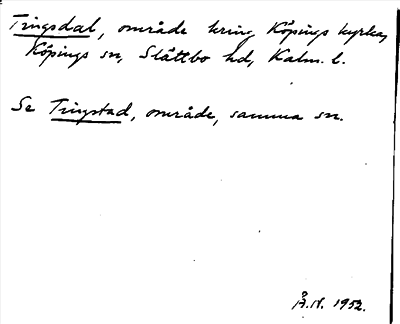 Tingsdal, område kring Köpings kyrka,
Köpings sn, Slättbo hd, Kalm. l.
Se Tingstad, område, samma sn.
Å.N. 1952.